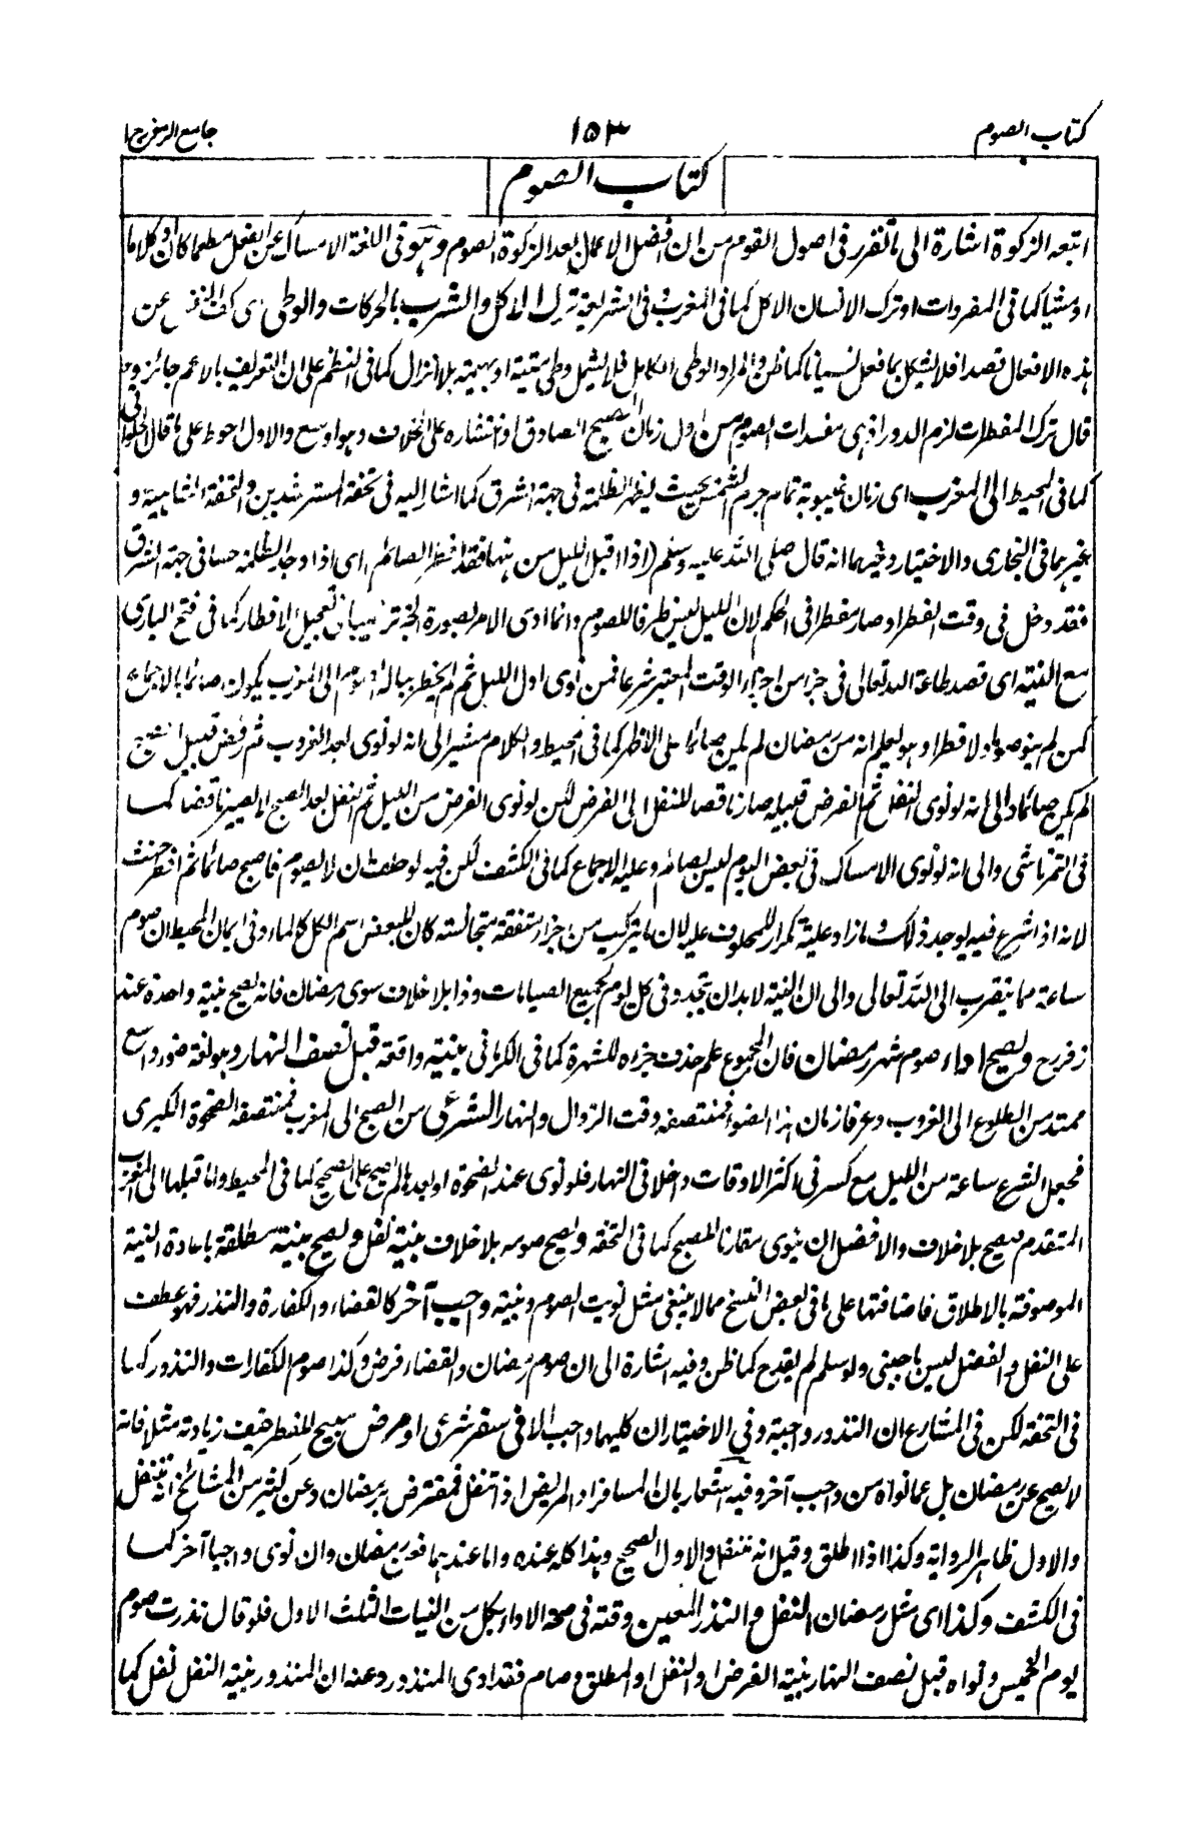 كتاب الصوم
١٥٣
جامع الرموز ج١
كتاب الصوم
اتبعه الزكوة اشارة الى ما تقرر فى اصول القوم من ان افضل الاعمال بعد الزكوة الصوم وهو فى اللغة الامساك عن الفعل مطعما كان او كلاما
او مشيا كما فى المفردات او ترك الانسان الاكل كما فى المغرب وفى الشريعة ترك الاكل والشرب بالحركات والوطى اى كف النفس عن
هذه الافعال قصدا فلا يشكل بما فعل نسيانا كما ظن والمراد الوطى الكامل فلا يشمل وطى ميتة او بهيمة بلا انزال كما فى النظم على ان التعريف بالاعم جائز ولو
قال ترك المفطرات لزم الدور اذ هى مفسدات الصوم من اول زمان الصبح الصادق او انتشاره على الخلاف وهو اوسع والاول احوط على ما قال الحلوانى
كما فى المحيط الى المغرب اى زمان غيبوبة تمام جرم الشمس بحيث يظهر الظلمة فى جهة المشرق كما اشار اليه فى تحفة المسترشدين والتحفة الشاهية و
غيرها فى البخارى والاختيار وغيرهما انه قال صلى الله عليه وسلم (اذا اقبل الليل من ههنا فقد افطر الصائم) اى اذا وجد الظلمة حسا فى جهة المشرق
فقد دخل فى وقت الفطر او صار مفطرا فى الحكم لان الليل ليس ظرفا للصوم وانما ادى الامر بصورة الخبر ترغيبا فى تعجيل الافطار كما فى فتح البارى
مع النية اى قصد طاعة الله تعالى فى جزء من اجزاء الوقت المعتبر شرعا فمن نوى اول الليل ثم لم يخطر بباله الصوم الى المغرب يكون صائما بالاجماع
كمن لم ينو صوما ولا فطرا وهو يعلم انه من رمضان لم يكن صائما على الاظهر كما فى المحيط والكلام مشير الى انه لو نوى بعد الغروب ثم رفض قبيل الصبح
لم يكن صائما والى انه لو نوى النفل ثم الفرض قبيله صار ناقضا للنفل الى الفرض لكن لو نوى الفرض من الليل ثم النفل بعد الصبح لا يصير ناقضا كما
فى التمرتاشى والى انه لو نوى الامساك فى بعض اليوم ليس بصائم وعليه الاجماع كما فى الكشف لكن فيه لو حلف ان لا يصوم فاصبح صائما ثم افطر حنث
لانه اذا شرع فيه يوجد ذلك وما زاد عليه تكرار للمحلوف عليه لان ما يتركب من اجزاء متفقة متجانسة كان للبعض اسم الكل كالماء وفى ايمان المحيط ان صوم
ساعة مما يتقرب الى الله تعالى والى ان النية لابد ان تتجدد فى كل يوم لجميع الصيامات وذا بلا خلاف سوى رمضان فانه يصح بنية واحدة عند
زفر رح ويصح اداء صوم شهر رمضان فان المجموع علم حذف جزءه للشهرة كما فى الكرمانى بنية واقعة قبل نصف النهار وهو لغة ضوء واسع
ممتد من الطلوع الى الغروب وعرفا زمان هذا الضوء فمنتصفه وقت الزوال والنهار الشرعى من الصبح الى المغرب فمنتصفه الضحوة الكبرى
فجعل الشرع ساعة من الليل مع كسر فى اكثر الاوقات داخلا فى النهار فلو نوى عند الضحوة او بعدها لم يصح على الصحيح كما فى المحيط واما قبلها الى المغرب
المتقدم فيصح بلا خلاف والافضل ان ينوى مقارنا للصبح كما فى التحفة ويصح صومه بلا خلاف بنية نفل ويصح بنية مطلقة باعادة النية
الموصوفة بالاطلاق فاضافتها على ما فى بعض النسخ مما لا ينبغى مثل نويت الصوم وبنية واجب آخر كالقضاء والكفارة والنذر فهو عطف
على النفل والفصل ليس باجنبى ولو سلم لم يقدح كما ظن وفيه اشارة الى ان صوم رمضان والقضاء فرض وكذا صوم الكفارات والنذور كما
فى التحفة لكن فى المشارع ان النذور واجبة وفى الاختيار ان كليهما واجب الا فى سفر شرعى او مرض يبيح الفطر خيف زيادته مثلا فانه
لا يصح عن رمضان بل عما نواه من واجب آخر وفيه اشعار بان المسافر او المريض اذا تنفل فمفترض برمضان وعن كثير من المشائخ انه متنفل
والاول ظاهر الرواية وكذا اذا اطلق وقيل انه متنفل والاول الصحيح وهذا كله عنده واما عندهما فهو رمضان وان نوى واجبا آخر كما
فى الكشف وكذا اى مثل رمضان النفل والنذر المعين وقته فى صحة الاداء بكل من النيات الثلث الاول فلو قال نذرت صوم
يوم الخميس ونواه قبل نصف النهار بنية الفرض او النفل او المطلق وصام فقد ادى المنذور وعنه ان المنذور بنية النفل نفل كما